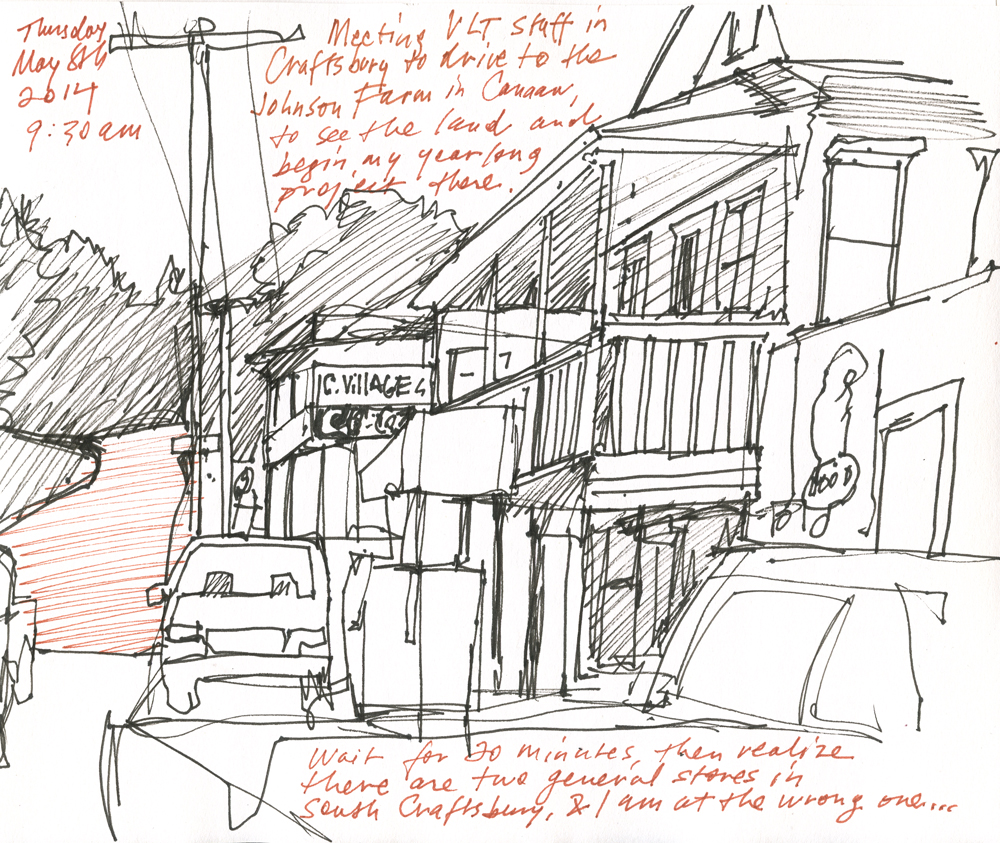 Thursday
May 8th
2014
9:30 am
Meeting VLT staff in
Craftsbury to drive to the
Johnson Farm in Canaan,
to see the land and
begin my yearlong
project there.
C. VillAGE
HOOD
Wait for 20 minutes, then realize
there are two general stores in
South Craftsbury, & I am at the wrong one...